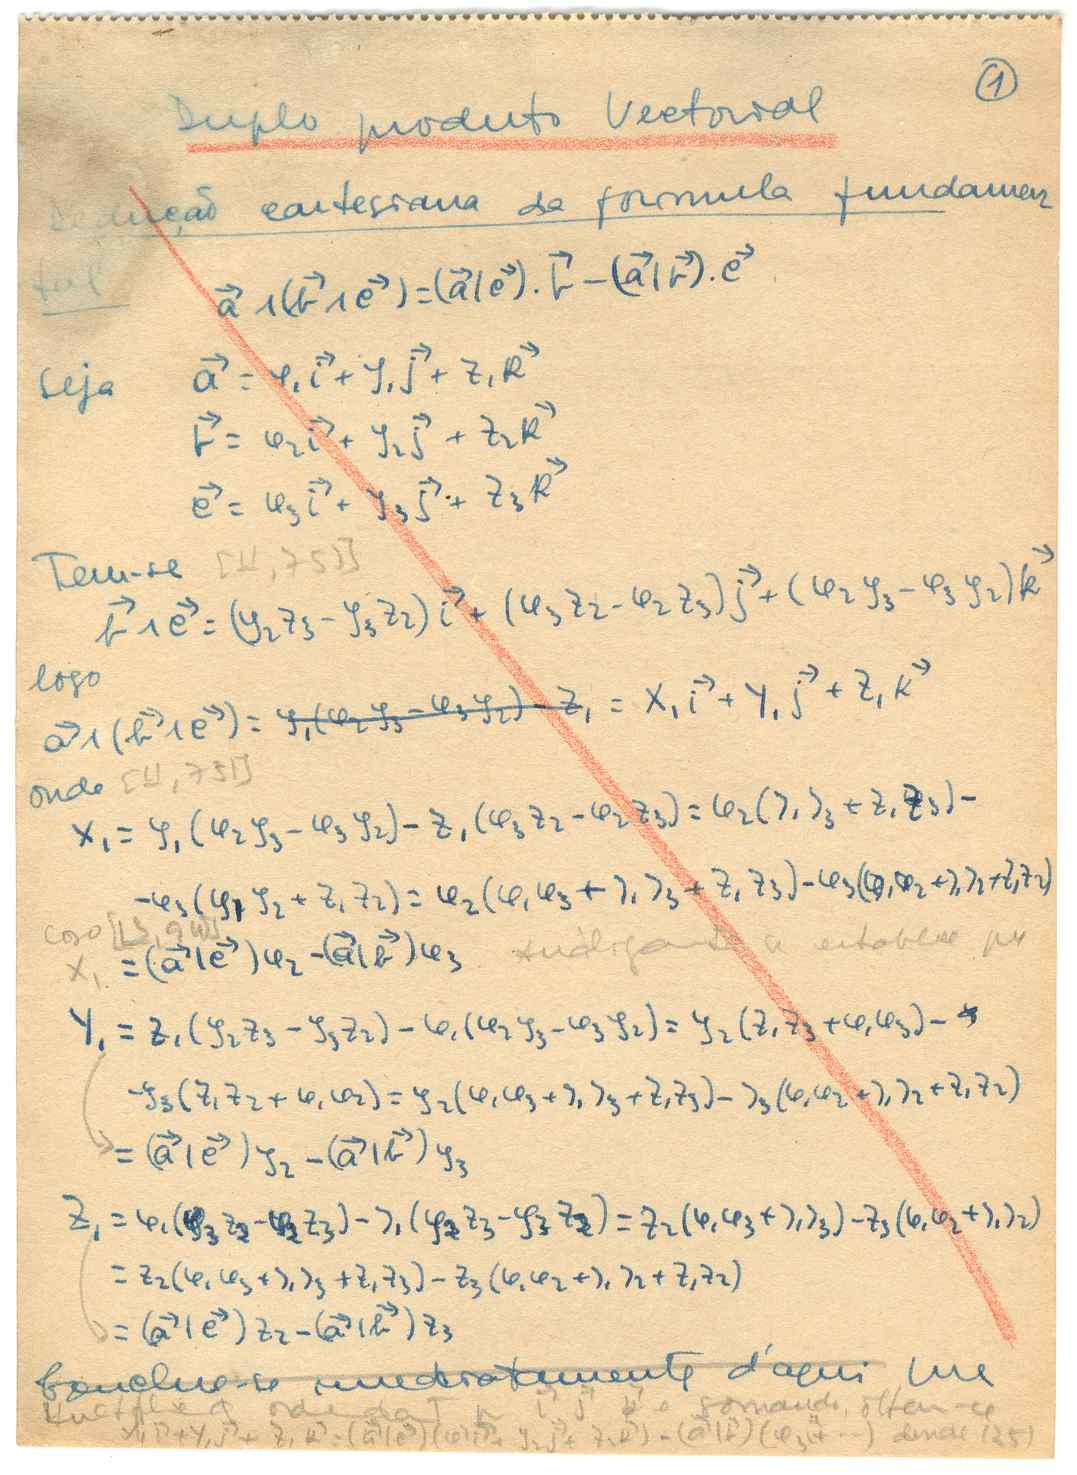 ①
Duplo produto Vectorial
Dedução cartesiana da formula fundamen
tal
a⃗ ∧ (b⃗ ∧ c⃗) = (a⃗ | c⃗). b⃗ − (a⃗ | b⃗). c⃗
Seja a⃗ = x₁i⃗ + y₁j⃗ + z₁k⃗
b⃗ = x₂i⃗ + y₂j⃗ + z₂k⃗
c⃗ = x₃i⃗ + y₃j⃗ + z₃k⃗
Tem-se
b⃗ ∧ c⃗ = (y₂z₃ − y₃z₂) i⃗ + (x₃z₂ − x₂z₃) j⃗ + (x₂y₃ − x₃y₂) k⃗
logo
a⃗ ∧ (b⃗ ∧ c⃗) = y₁(x₂y₃ − x₃y₂) − z₁ = X₁i⃗ + Y₁j⃗ + Z₁k⃗
onde
X₁ = y₁(x₂y₃ − x₃y₂) − z₁(x₃z₂ − x₂z₃) = x₂(y₁y₃ + z₁z₃) −
−x₃(y₁y₂ + z₁z₂) = x₂(x₁x₃ + y₁y₃ + z₁z₃) − x₃(x₁x₂ + y₁y₂ + z₁z₂)
X₁ = (a⃗ | c⃗) x₂ − (a⃗ | b⃗) x₃
Y₁ = z₁(y₂z₃ − y₃z₂) − x₁(x₂y₃ − x₃y₂) = y₂(z₁z₃ + x₁x₃) −
−y₃(z₁z₂ + x₁x₂) = y₂(x₁x₃ + y₁y₃ + z₁z₃) − y₃(x₁x₂ + y₁y₂ + z₁z₂)
= (a⃗ | c⃗) y₂ − (a⃗ | b⃗) y₃
Z₁ = x₁(x₃z₂ − x₂z₃) − y₁(y₂z₃ − y₃z₂) = z₂(x₁x₃ + y₁y₃) − z₃(x₁x₂ + y₁y₂)
= z₂(x₁x₃ + y₁y₃ + z₁z₃) − z₃(x₁x₂ + y₁y₂ + z₁z₂)
= (a⃗ | c⃗) z₂ − (a⃗ | b⃗) z₃
Conclue-se imediatamente d'aqui que
i⃗ j⃗ k⃗ e somando, obtem-se
X₁i⃗ + Y₁j⃗ + Z₁k⃗ = (a⃗ | c⃗)(x₂i⃗ + y₂j⃗ + z₂k⃗) − (a⃗ | b⃗)(x₃i⃗ + ...) donde (25)